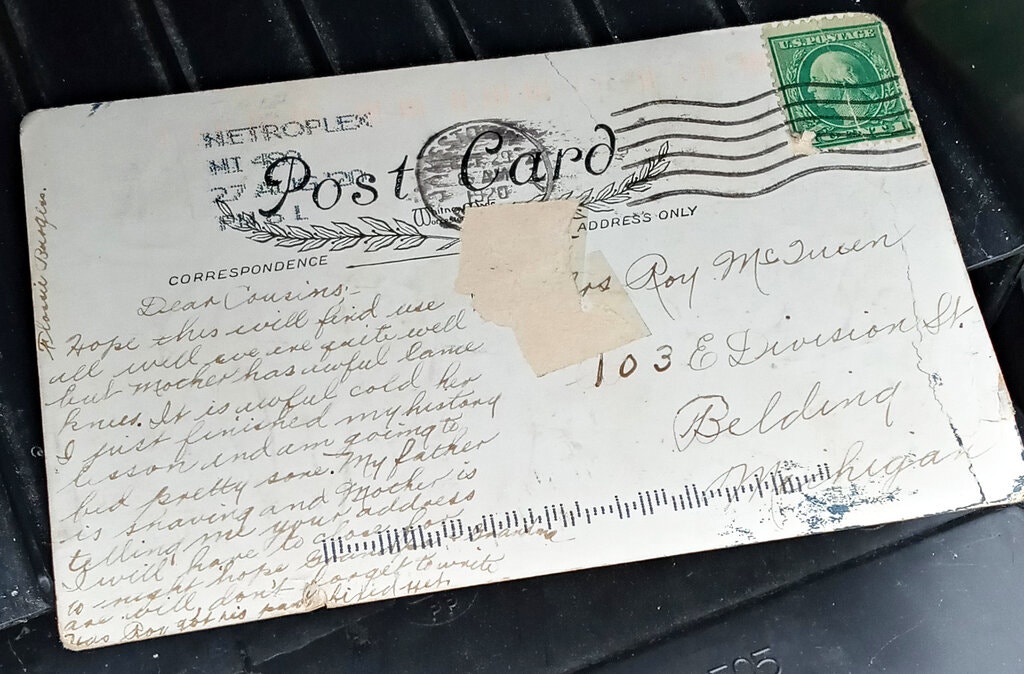 U.S. POSTAGE
METROPLEX
MI 480
Post Card
1920
CORRESPONDENCE
ADDRESS ONLY
Flossie Burgess
Dear Cousins:-
Hope this will find use
all well we are quite well
but Mother has awful lame
knees. It is awful cold her
I just finished my history
lesson and am going to
bed pretty sone. My father
is shaving and Mother is
telling me your address
I will have to close for
to night hope
are will, don't forget to write
has Roy got his yet.
rs Roy McQueen
103 E Division St.
Belding
Michigan